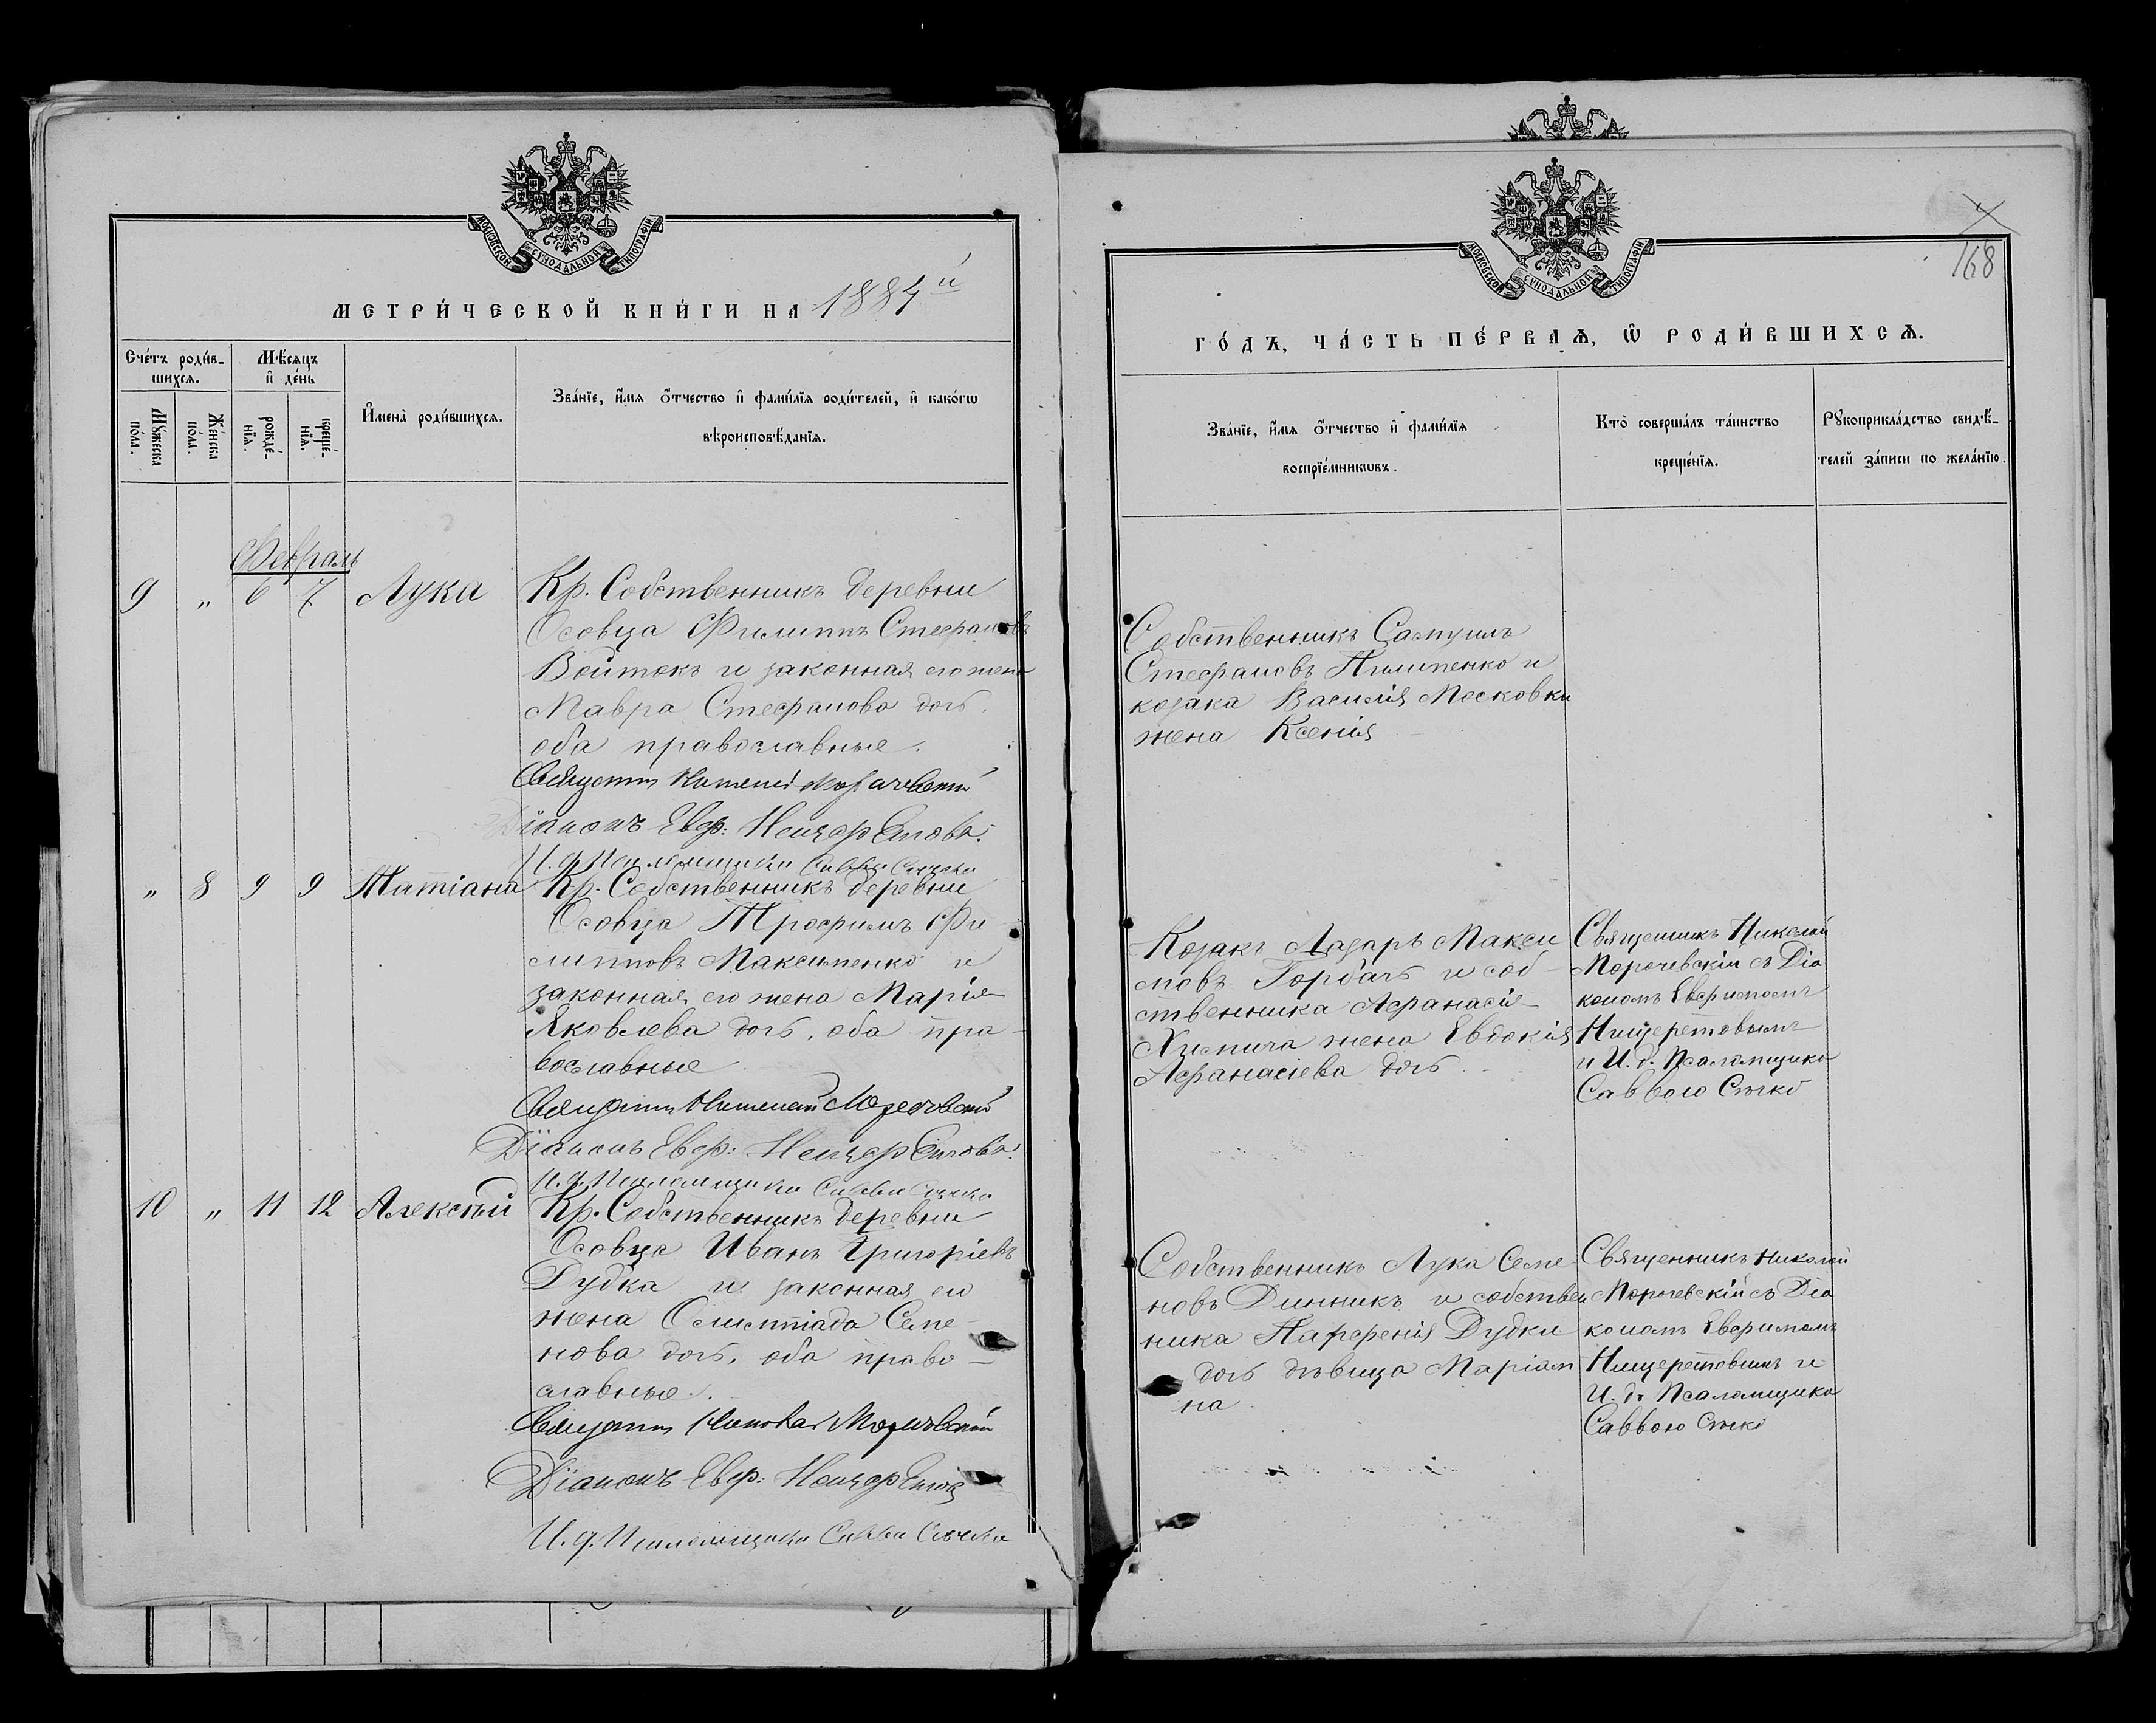 МОСКОВСКОЙ СѴНОДАЛЬНОЙ ТИПОГРАФІИ
МЕТРИ́ЧЕСКОЙ КНИ́ГИ НА 1884й
Сче́тъ роди́в-
шихсѧ.
Мѣ́сѧцъ
и҆ де́нь
Мꙋ́жеска
по́ла.
Же́нска
по́ла.
рожде́-
нїѧ.
креще́-
нїѧ.
И҆мена̀ роди́вшихсѧ.
Зва́нїе, и҆́мѧ ѻ҆́тчество и҆ фами́лїѧ роди́телей, и҆ како́гѡ
вѣроисповѣ́данїѧ.
Февраль
9 „ 6 7 Лука Кр. Собственникъ деревни
Осовца Филиппъ Стефановъ
Войтокъ и законная его жена
Мавра Стефанова дочь.
оба православные.
Священникъ Николай Морачевскій
Діаконъ Евф:
И. д. Псаломщика Савва Сѣчко
„ 8 9 9 Татіана Кр. Собственникъ деревни
Осовца Трофимъ Фи
липповъ Максименко и
законная его жена Марія
Яковлева дочь, оба пра-
вославные
Священникъ Николай Морачевскій
Діаконъ Евф:
И. д. Псаломщика Савва Сѣчко
10 „ 11 12 Алексѣй Кр. Собственникъ деревни
Осовца Иванъ Григоріевъ
Дудка и законная его
жена Олимпіада Семе-
нова дочь, оба право-
славные.
Священникъ Николай Морачевскій
Діаконъ Евф:
И. д. Псаломщика Савва Сѣчко
МОСКОВСКОЙ СѴНОДАЛЬНОЙ ТИПОГРАФІИ
168
ГО́ДЪ, ЧА́СТЬ ПЕ́РВАѦ, Ѡ҆ РОДИ́ВШИХСѦ.
Зва́нїе, и҆́мѧ ѻ҆́тчество и҆ фами́лїѧ
воспрїе́мникѡвъ.
Кто̀ соверша́лъ та́инство
креще́нїѧ.
Рꙋкоприкла́дство свидѣ́-
телей за́писи по жела́нїю.
Собственникъ Самуилъ
Стефановъ Пилипенко и
козака Василія Московки
жена Ксенія
Козакъ Лазарь Макси
мовъ Горбачъ и соб-
ственника Афанасія
жена Евдокія
Афанасіева дочь.
Священникъ Николай
Морачевскій съ Діа
кономъ Евфимомъ
Нищеретовымъ
и И. д. Псаломщика
Саввою Сѣчко
Собственникъ Лука Семе
новъ Динникъ и собствен
ника Парфенія Дудки
дочь дѣвица Маріам
на.
Священникъ Николай
Морачевскій съ Діа
кономъ Евфимомъ
Нищеретовымъ и
И. д. Псаломщика
Саввою Сѣчко